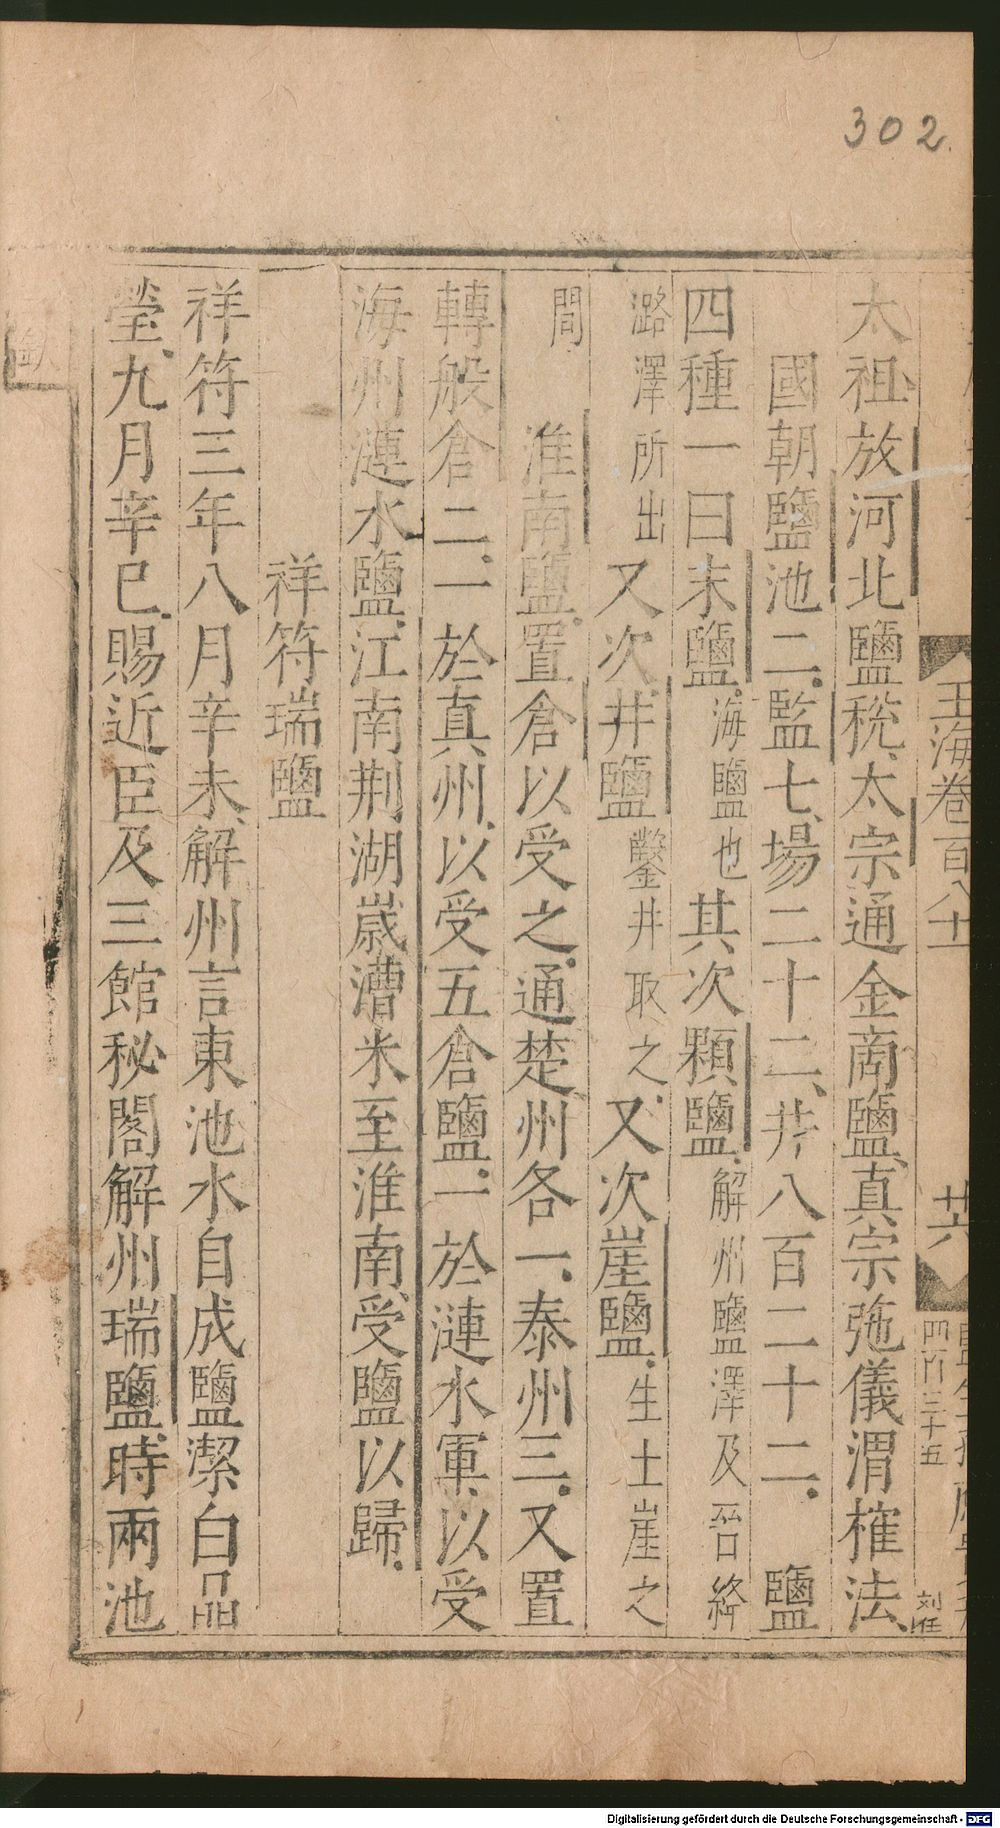 302
玉海卷百八十一
廿六
四百三十五
刘任
太祖放河北鹽稅、太宗通金商鹽、真宗弛儀渭榷法
國朝鹽池二、監七、場二十二、井八百二十二。鹽
四種一曰末鹽。海鹽也其次顆鹽。解州鹽澤及晉絳
潞澤所出又次井鹽鑿井取之、又次崖鹽。生土崖之
間 淮南鹽、置倉以受之、通楚州各一、泰州三、又置
轉般倉二、一於真州、以受五倉鹽。一於漣水軍、以受
海州漣水鹽、江南荆湖嵗漕米至淮南、受鹽以歸。
祥符瑞鹽
祥符三年八月辛未、解州言東池水自成鹽潔白晶
瑩、九月辛巳、賜近臣及三館秘閣解州瑞鹽、時兩池